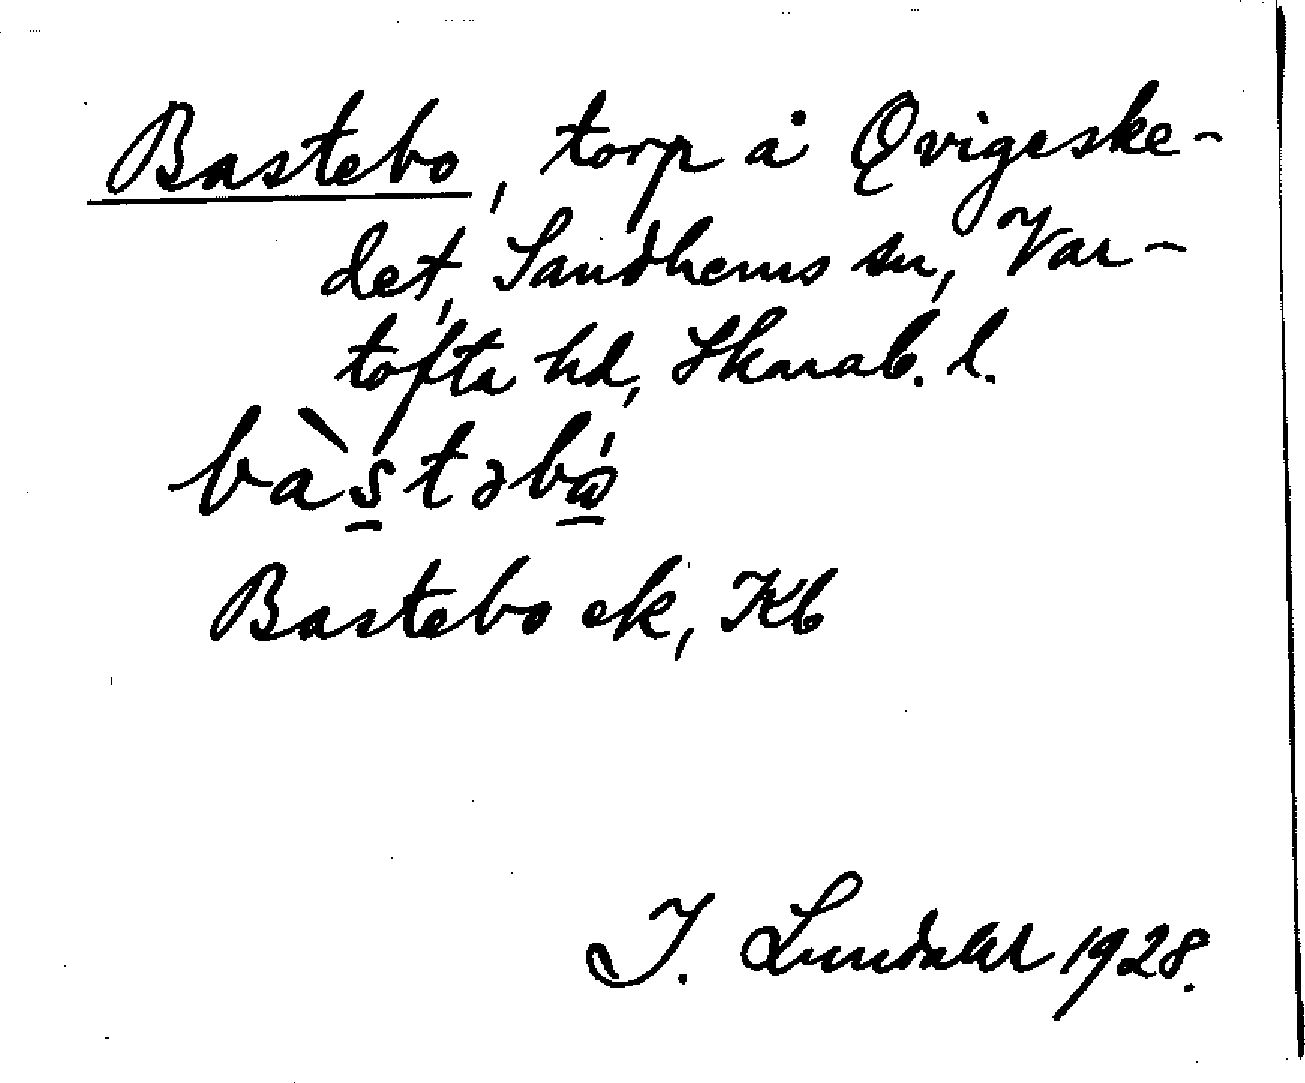 Bastebo, torp å Qvigeske-
det, Sandhems sn, Var-
tofta hd, Skarab. l.
bàs̲təbǻ̲
Bastebo ek, Kb
I. Lundahl 1928.